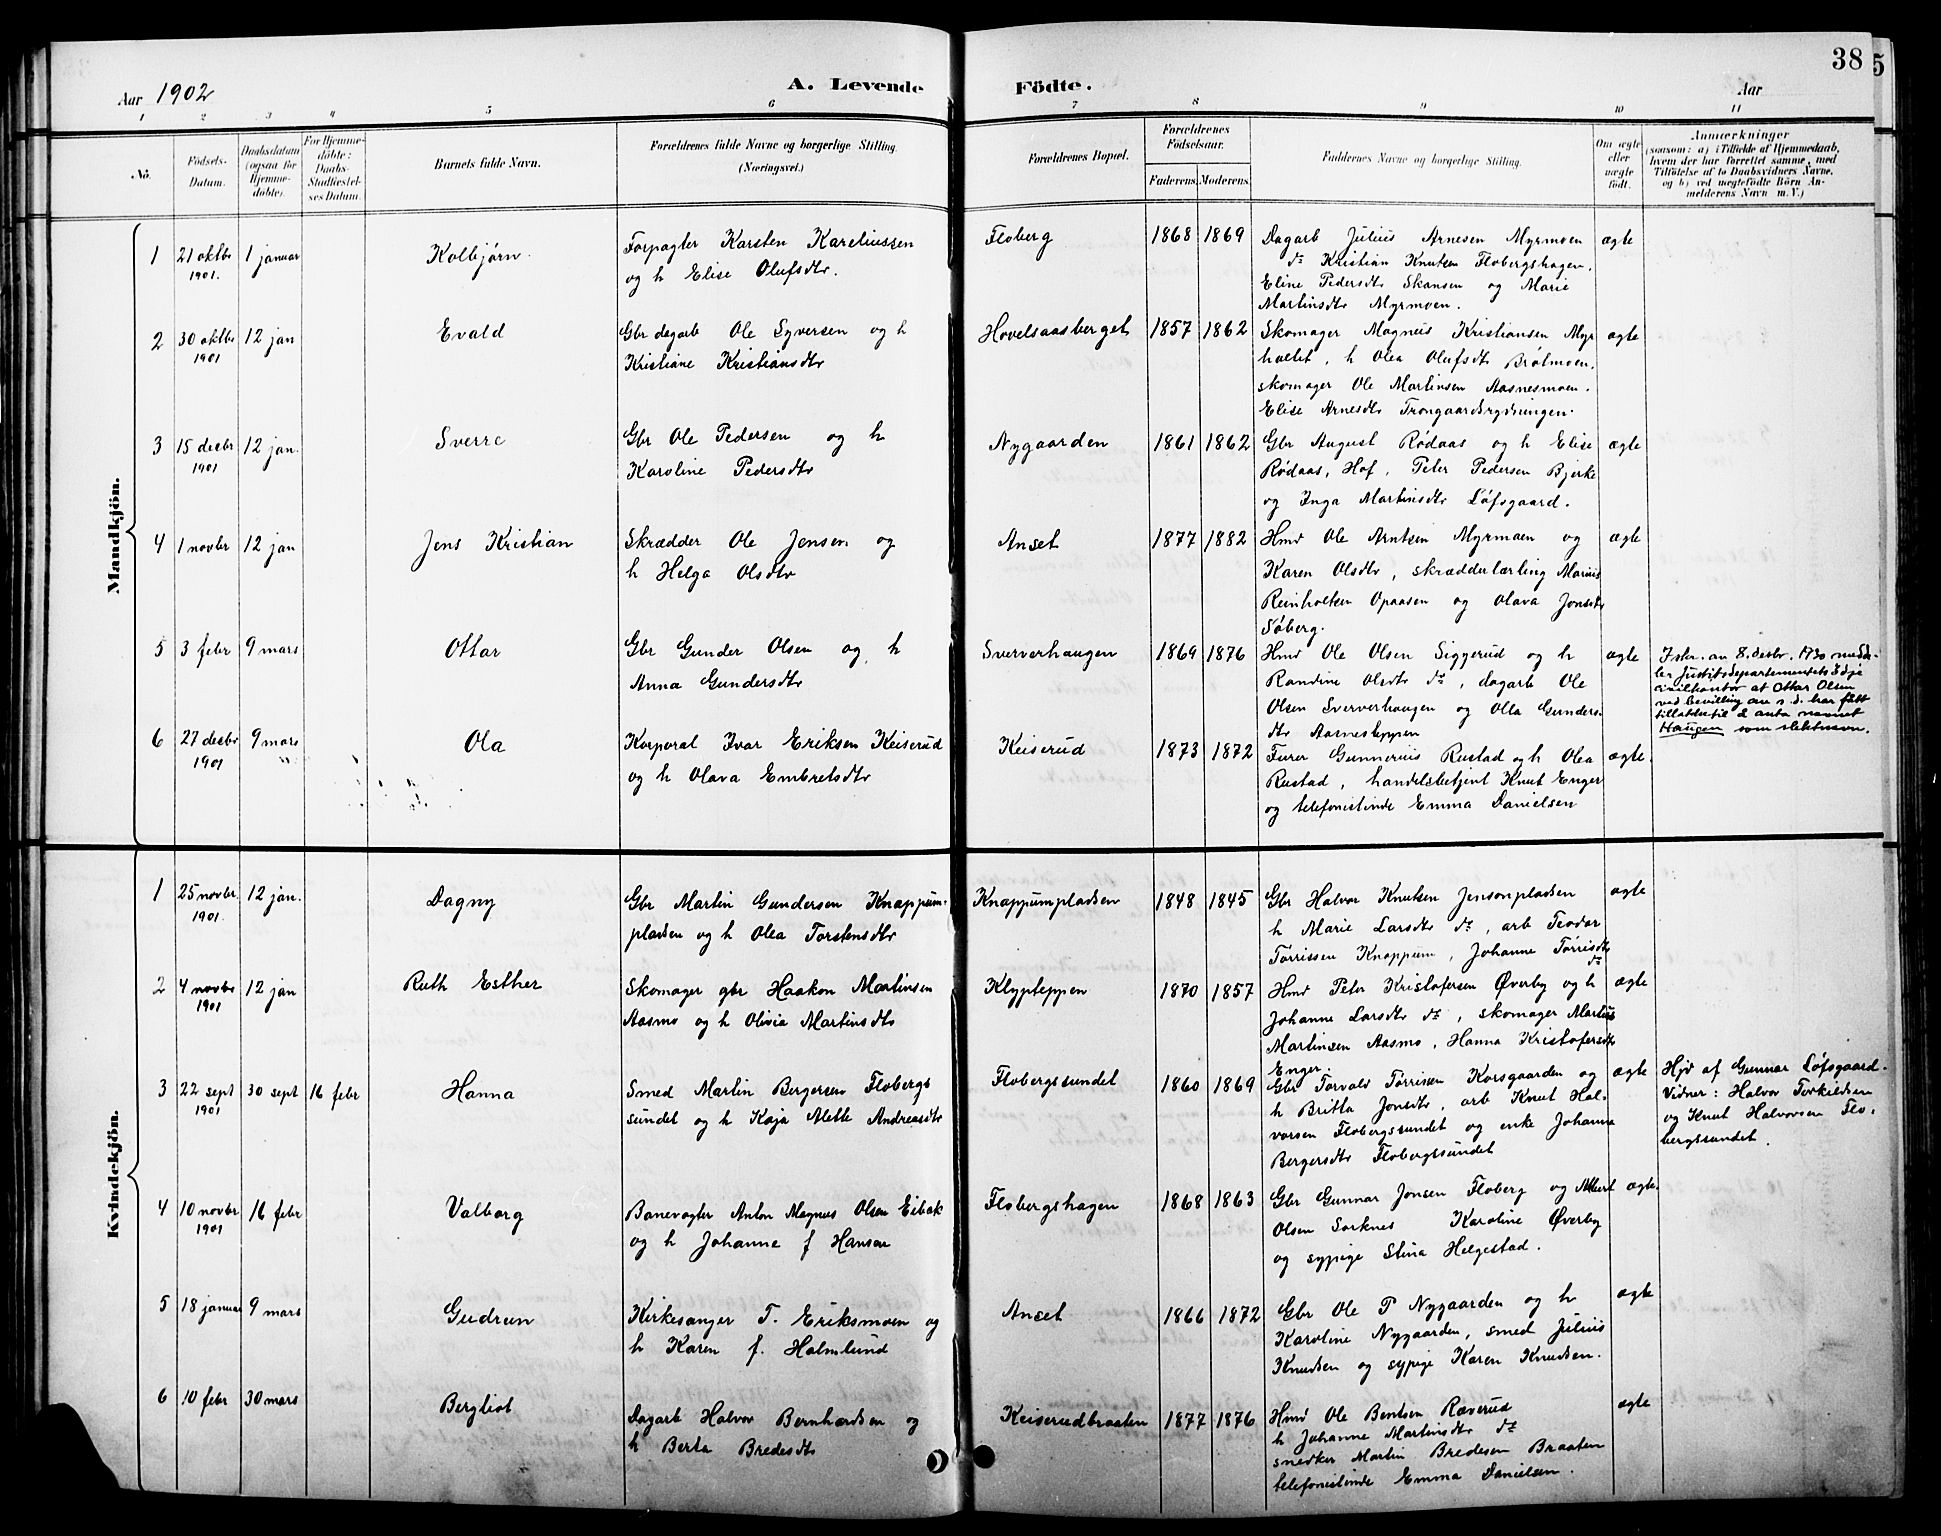 38
5
Aar 1902
A. Levende Födte.
Aar
1 2 3 4 5 6 7 8 9 10 11
No.
Födsels-Datum.
Daabsdatum (ogsaa for Hjemme-döbte).
For Hjemme-döbte: Daabs-Stadfæstelses Datum.
Barnets fulde Navn.
Forældrenes fulde Navne og borgerlige Stilling. (Næringsvei.)
Forældrenes Bopæl.
Forældrenes Födselsaar.
Faderens. Moderens.
Faddernes Navne og borgerlige Stilling.
Om ægte eller uægte født.
Anmærkninger
(saasom: a) i Tilfælde af Hjemmedaab, hvem der har forrettet samme, med Tilföielse af to Daabsvidners Navne, og b) ved uegtefödte Börn Anmelderens Navn m. V.)
Mandkjön.
1 21 oktbr 1901. 1 januar Kolbjørn. Forpagter Karsten Kareliussen
og h Elise Olufsdtr. Floberg 1868 1869 Dagarb Julius Arnesen Myrmoen ægte
do Kristian Knutsen Flobergshagen.
Eline Pedersdtr Skansen og Marie
Martinsdtr Myrmoen.
2 30 oktbr 1901 12 jan Evald Gbr dagarb Ole Syversen og h
Kristiane Kristiansdtr Hovelsaasberget 1857 1862 Skomager Magnus Kristiansen Myr ægte
holtet, h Olea Olufsdtr Brølmoen.
skomager Ole Martinsen Aasnesmoen.
Elise Arnesdtr Trongaardsrydningen.
3 15 decbr 1901 12 jan. Sverre Gbr Ole Pedersen og h
Karoline Pedersdtr Nygaarden 1861 1862 Gbr August Rødaas og h Elise ægte
Rødaas, Hof, Peter Pedersen Bjerke
og Inga Martinsdtr Løfsgaard.
4 1 novbr 12 jan Jens Kristian Skrædder Ole Jensen og
h Helga Olsdtr Anset 1877 1882 Hmd Ole Arntsen Myrmoen og ægte
Karen Olsdtr, skrædderlærling Marius
Reinholtsen Opaasen og Olava Jonsdtr
Søberg.
5 3 febr 9 mars Ottar Gbr Gunder Olsen og h
Anna Gundersdtr Sververhaugen 1869 1876 Hmd Ole Olsen Siggerud og h ægte
Randine Olsdtr do, dagarb Ole
Olsen Sververhaugen og Olla Gunders-
dtr Aasnesteppen
I skr. av 8. desbr. 1930 medde-
ler Justitsdepartementets 3dje
civilkontor at Ottar Olsen
ved bevilling av s.d. har fått
tillatelse til å anta navnet
Haugen som slektnavn.
6 27 decbr 1901 9 mars Ola Korporal Ivar Eriksen Keiserud
og h Olava Embretsdtr Keiserud 1873 1872 Furer Gunnerius Rustad og h Olea ægte.
Rustad, handelsbetjent Knut Enger
og telefonistinde Emma Danielsen
Kvindekjön.
1 25 novbr 1901. 12 jan. Dagny Gbr Martin Gundersen Knappum-
pladsen og h Olea Torstensdtr Knappumpladsen 1848 1845 Gbr Halvor Knutsen Jensonpladsen ægte
h Marie Larsdtr do, arb Teodor
Tørrissen Knappum, Johanne Tørrisdtr
do
2 4 novbr 1901 12 jan Ruth Esther Skomager gbr Haakon Martinsen
Aasmo og h Olivia Martinsdtr Klypteppen 1870 1857 Hmd Peter Kristofersen Øverby og h ægte
Johanne Larsdtr do, skomager Martius
Martinsen Aasmo, Hanna Kristofersdtr
Enger.
3 22 sept 1901 30 sept 16 febr Hanna Smed Martin Bergersen Flobergs
sundet og h Kaja Alette Andreasdtr Flobergssundet 1860 1869 Gbr Torvald Tørrissen Korsgaarden og ægte
h Britta Jonsdtr, arb Knut Hal-
vorsen Flobergssundet og enke Johanna
Bergersdtr Flobergssundet
Hjd af Gunnar Løfsgaard.
Vidner: Halvor Torkildsen
og Knut Halvorsen Flo-
bergssundet.
4 10 novbr 1901 16 febr Valborg Banevogter Anton Magnus Olsen Eibak
og h Johanne f Hansen Flobergshagen 1868 1863 Gbr Gunnar Jonsen Floberg og Albert ægte.
Olsen Sorknes Karoline Øverby
og sypige Stina Helgestad.
5 18 januar 9 mars Gudrun Kirkesanger T. Eriksmoen og
h Karen f. Halmlund Anset 1866 1872 Gbr Ole P Nygaarden og h ægte
Karoline Nygaarden, smed Julius
Knudsen og sypige Karen Knudsen.
6 10 febr 30 mars Bergliot Dagarb Halvor Bernhardsen og
h Berta Bredesdtr Keiserudbraaten 1877 1876 Hmd Ole Bentsen Räverud ægte
h Johanne Martinsdtr do
snedker Martin Bredesen Braaten
telefonistinde Emma Danielsen.